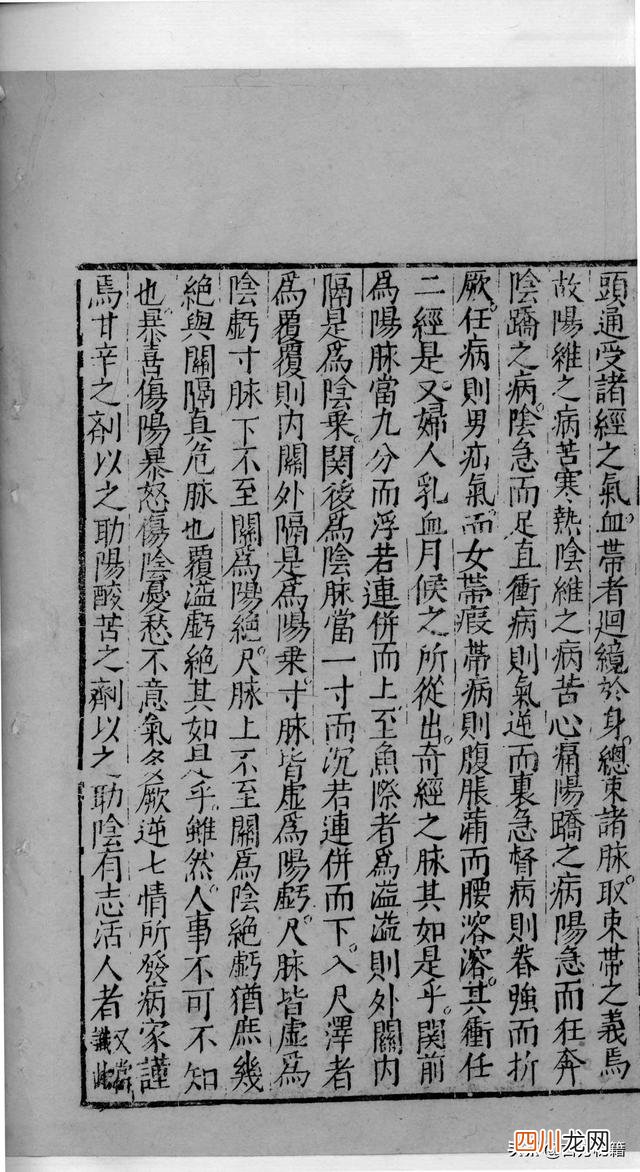 頭通受諸經之氣血帶者迴繞於身。總束諸脉取束帶之義焉
故陽維之病苦寒熱陰維之病苦心痛陽蹻之病陽急而狂奔
陰蹻之病。陰急而足直衝病則氣逆而裏急督病則脊強而折
厥。任病則男疝氣。而女帶瘕帶病則腹脹滿而腰溶溶。其衝任
二經是。又婦人乳血月候之所從出。奇經之脉其如是乎。関前
為陽脉當九分而浮若連併而上至魚際者為溢溢則外關内
隔是為陰乗。関後為陰脉當一寸而沉若連併而下。入尺澤者
為覆覆則内關外隔是為陽乗。寸脉皆虛為陽虧。尺脉皆虛為
陰虧寸脉下不至關為陽絶尺脉上不至關為陰絶虧猶庶幾
絶與關隔真危脉也覆溢虧絶其如是乎。雖然。人事不可不知
也。暴喜傷陽暴怒傷陰憂愁不意氣多厥逆七情所發病家謹
焉甘辛之剤以之助陽酸苦之劑以之助陰有志活人者又當識此
四川龙网